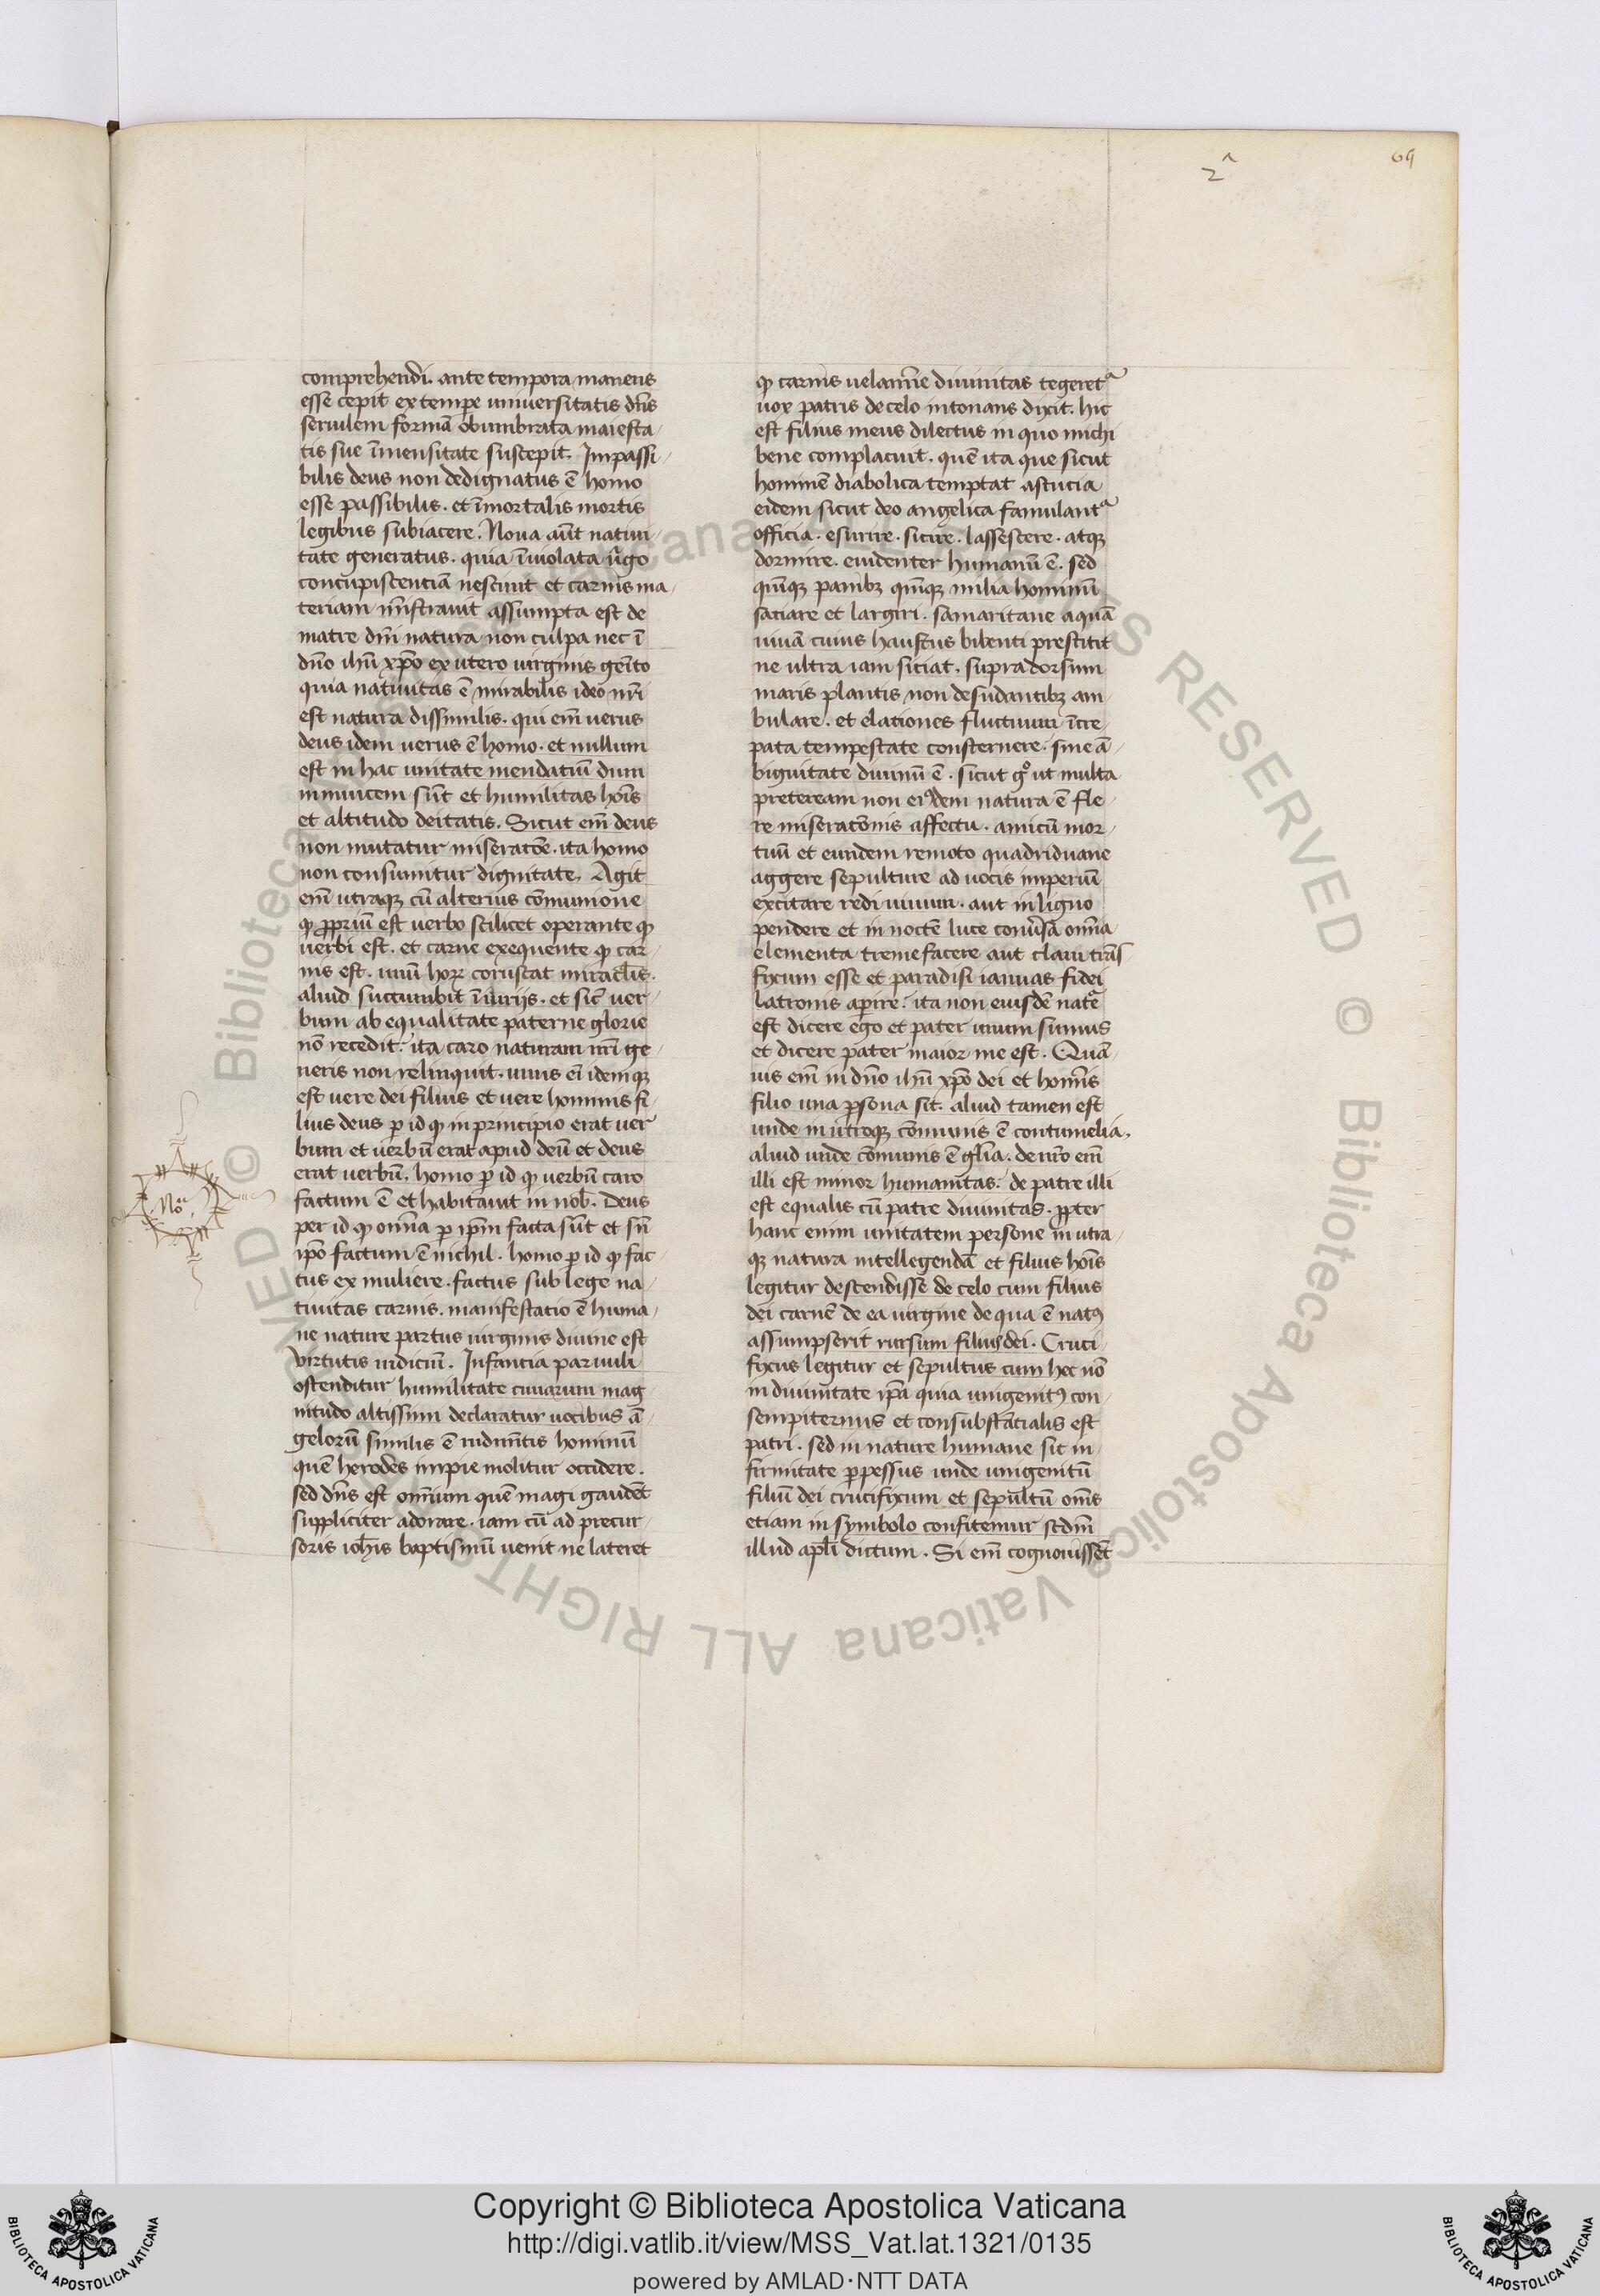 2ᵃ
69
comprehendi. ante tempora manens
esse cepit ex tempe universitatis dn̄s
seruilem formā obumbrata maiesta
tis sue īmensitate suscepit. Impassi
bilis deus non dedignatus ē homo
esse passibilis. et īmortalis mortis
legibus subiacere. Noua aūt natiui
tate generatus. quia īuiolata u̓go
concupiscentiā nesciuit et carnis ma
teriam mīstrauit assumpta est de
matre dn̄i natura non culpa nec ī
dn̄o ihū xp̄o ex utero uirginis gēito
quia natiuitas ē mirabilis ideo nr̄i
est natura dissimilis. qui em̄ uerus
deus idem uerus ē homo. et nullum
est in hac unitate mendatiū dum
inuicem sūt et humilitas hōis
et altitudo deitatis. Sicut em̄ deus
non mutatur miseratōe. ita homo
non consumitur dignitate. Agit
em̄ utraqꝫ cū alterius cōmunione
ꝙ ꝓpriū est uerbo scilicet operante ꝙ
uerbi est. et carne exequente ꝙ car
nis est. unū hoꝝ coruscat miracl̄is.
aliud succumbit īiurijs. et sic̄ uer
bum ab equalitate paterne glorie
nō recedit. ita caro naturam nr̄i ge
neris non relinquit. unus ei idemqꝫ
est uere dei filius et uere hominis fi
lius deus ꝑ id ꝙ in principio erat uer
bum et uerbū erat apud deū et deus
erat uerbū. homo ꝑ id ꝙ uerbū caro
factum ē et habitauit in nob̄. Deus
per id ꝙ om̄ia ꝑ ip̄m facta sūt et sn̄
ip̄o factum ē nichil. homo ꝑ id ꝙ fac
tus ex muliere. factus sub lege na
tiuitas carnis. manifestatio ē huma
ne nature partus uirginis diuine est
virtutis indiciū. Infantia paruuli
ostenditur humilitate cunarum mag
nitudo altissimi declaratur uocibus ā
gelorū similis ē rudim̄tis hominū
quē herodes impie molitur occidere.
sed dn̄s est om̄ium quē magi gaudēt
suppliciter adorare. iam cū ad precur
soris ioh̄is baptismū uenit ne lateret
Noᵃ
ꝙ carnis uelamīe diuinitas tegeretᵃ
uox patris de celo intonans dixit. hic
est filius meus dilectus in quo michi
bene complacuit. quē ita que sicut
hominē diabolica temptat astucia
eidem sicut deo angelica famulantᵃ
officia. esurire. sitire. lassescere. atqꝫ
dormire. euidenter humanū ē. sed
quīqꝫ panibꝫ quīqꝫ milia hominū
saciare et largiri. samaritane aquā
uiuā cuius haustus bibenti prestitit
ne ultra iam siciat. supra dorsum
maris plantis non desudantibꝫ am
bulare. et elationes fluctuum īcre
pata tempestate consternere. sine ā
biguitate diuinū ē. sicut gͦ ut multa
preteream non eiꝰdem natura ē fle
re miseratōnis affectu. amicū mor
tuū et eundem remoto quadriduane
aggere sepulture ad uocis imperiū
excitare rediuiuum. aut in ligno
pendere et in noctē luce conu̓sa om̄ia
elementa tremefacere aut clauis trās
fixum esse et paradisi ianuas fidei
latronis aperire. ita non eiusdē natᵉ
est dicere ego et pater unum sumus
et dicere pater maior me est. Quā
uis em̄ in dn̄o ihū xp̄o dei et homīs
filio una ꝑsona sit. aliud tamen est
unde in utroqꝫ cōmunis ē contumelia.
aliud unde cōmunis ē gl̄ia. de nr̄o em̄
illi est minor humanitas. de patre illi
est equalis cū patre diuinitas. ꝓpter
hanc enim unitatem persone in utra
qꝫ natura intellegendā et filius hōis
legitur descendisse de celo cum filius
dei carnē de ea uirgine de qua ē natꝰ
assumpserit rursum filius dei. Cruci
fixus legitur et sepultus cum hec nō
in diuinitate ip̄a quia unigenitꝰ con
sempiternus et consubstātialis est
patri. sed in nature humane sit in
firmitate ꝑpessus unde unigenitū
filiū dei crucifixum et sepultū om̄s
etiam in symbolo confitemur scdm̄
illud apl̄i dictum. Si em̄ cognouissēt
Copyright © Biblioteca Apostolica Vaticana
http://digi.vatlib.it/view/MSS_Vat.lat.1321/0135
powered by AMLAD·NTT DATA
BIBLIOTECA APOSTOLICA VATICANA
BIBLIOTECA APOSTOLICA VATICANA